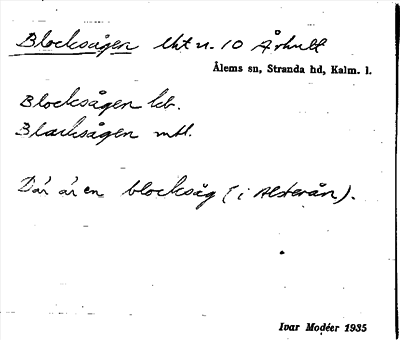 Blocksågen lht u. 10 Århult
Ålems sn, Stranda hd, Kalm. l.
Blocksågen kb.
Blocksågen mtl.
Där är en blocksåg (i Alsterån).
Ivar Modéer 1935